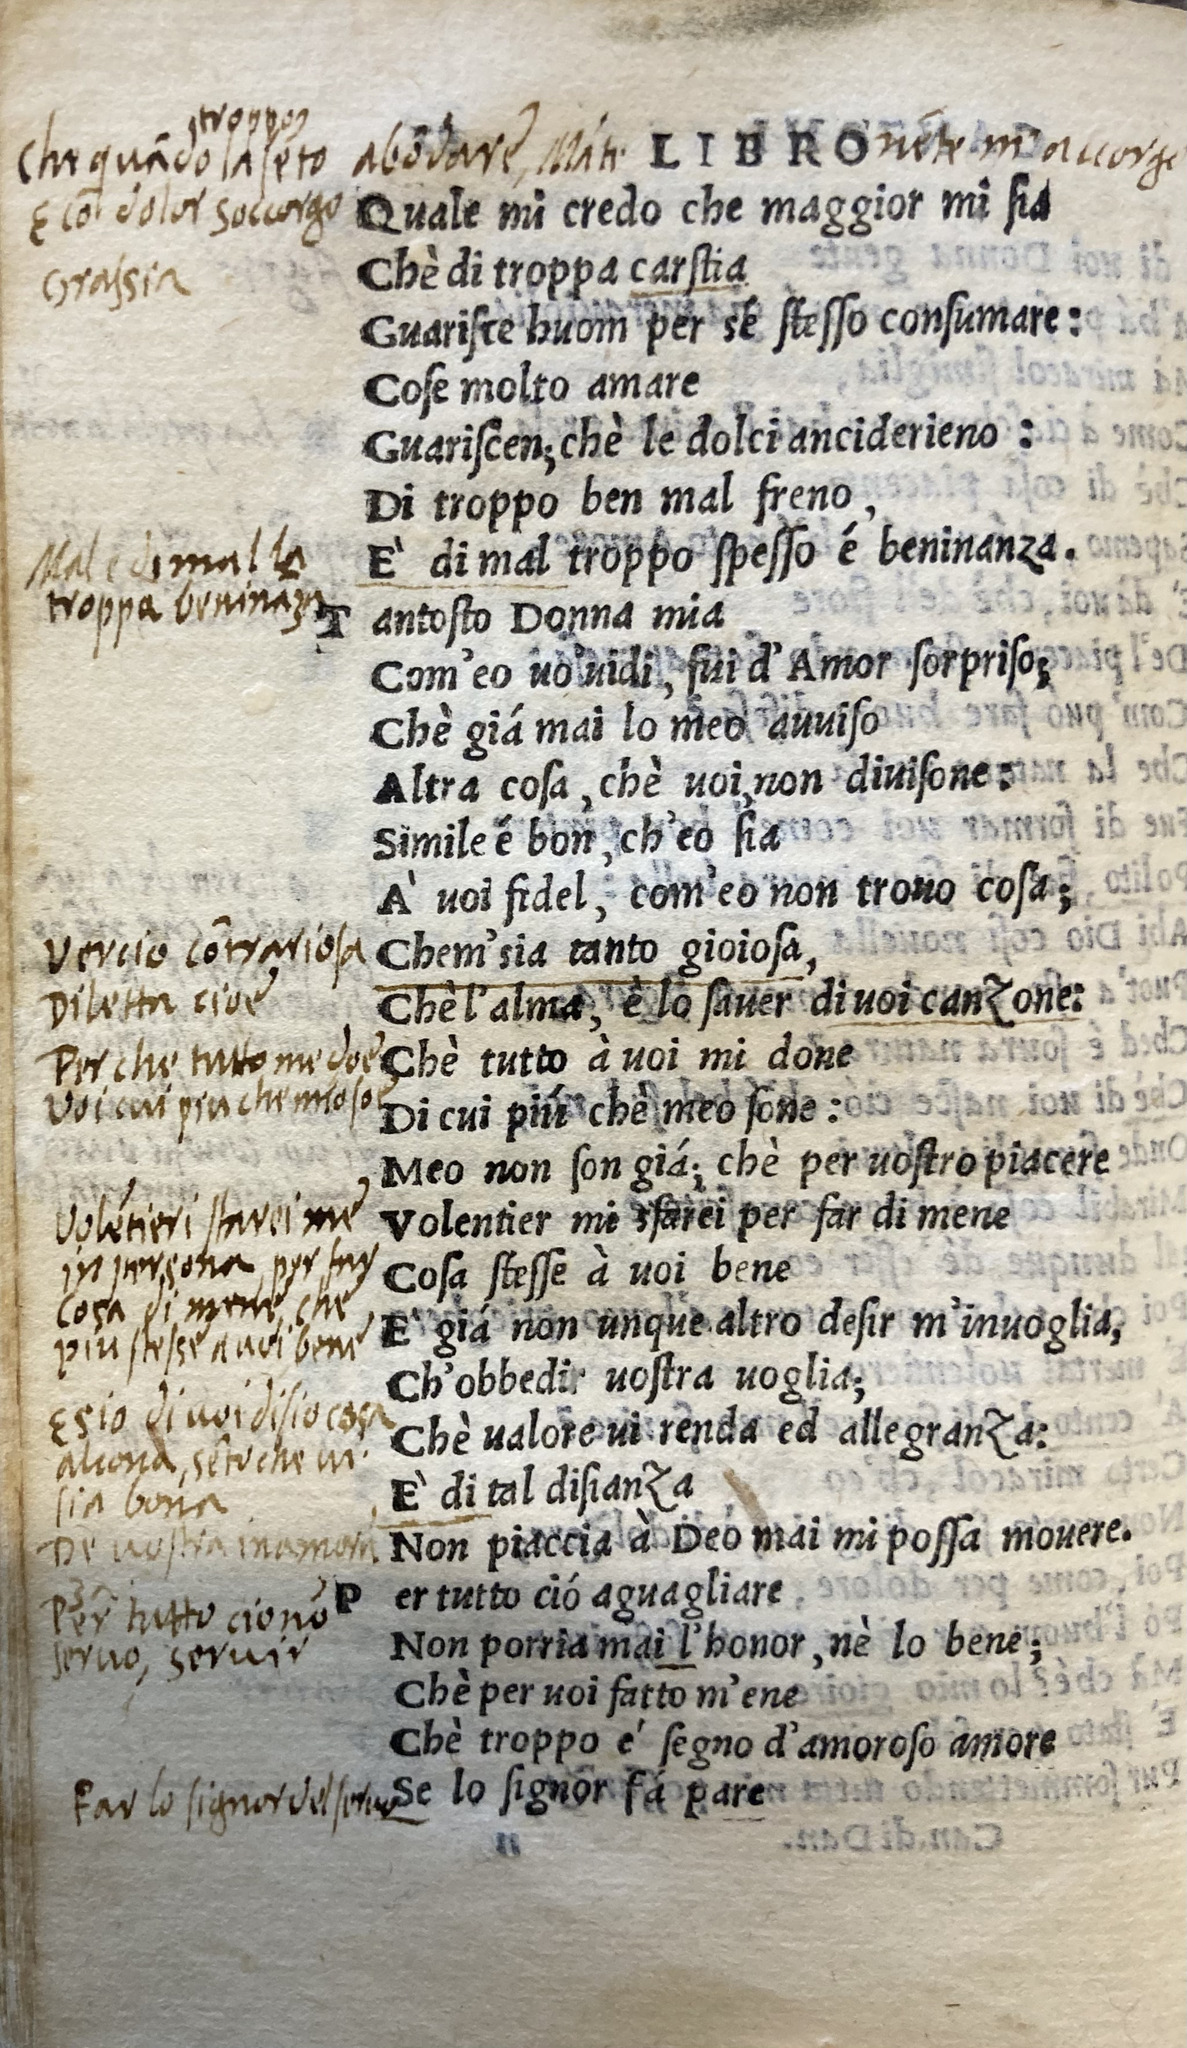 troppo
Che quãdo la séto abõdare, Máte LIBRO néte m'accorge
E cõ dolor soccorgo Quale mi credo che maggior mi sia
Grassia Chè di troppa carstia
Guarisce huom per sé stesso consumare:
Cose molto amare
Guariscen; chè le dolci anciderieno:
Di troppo ben mal freno,
È di mal troppo spesso é beninanza.
Male di mal la
troppa beninaza
Tantosto Donna mia
Com'eo uo' uidi, fui d'Amor sorpriso;
Chè giá mai lo meo auuiso
Altra cosa, chè uoi, non diuisone:
Simile é bon, ch'eo sia
À uoi fidel, com'eo non trouo cosa;
Vercio cõtrariosa Chem'sia tanto gioiosa,
Diletta cioé Chè l'alma, è lo sauer di uoi canzone:
Per che tutto me doé Chè tutto à uoi mi done
Voi cui piu che mio so Di cui piú chè meo sone:
Meo non son giá; chè per uostro piacere
Volétieri starei me Volentier mi sfarei per far di mene
in persona per far Cosa stesse à uoi bene
Cosa di mene, che
piu stesse a uoi bene È giá non unque altro desir m'inuoglia,
Ch'obbedir uostra uoglia;
E s'io di uoi disio cosa
alcona, séto che ui Chè ualore ui renda ed allegranza:
sia bona È di tal disianza
De uostra inamora Non piaccia à Deo mai mi possa mouere.
Per tutto cio nõ Per tutto ció aguagliare
seruo, seruir Non porria mai l'honor, nè lo bene;
Chè per uoi fatto m'ene
Chè troppo é segno d'amoroso amore
Far lo signor del seruo Se lo signor fá pare
n Can. di Dan.